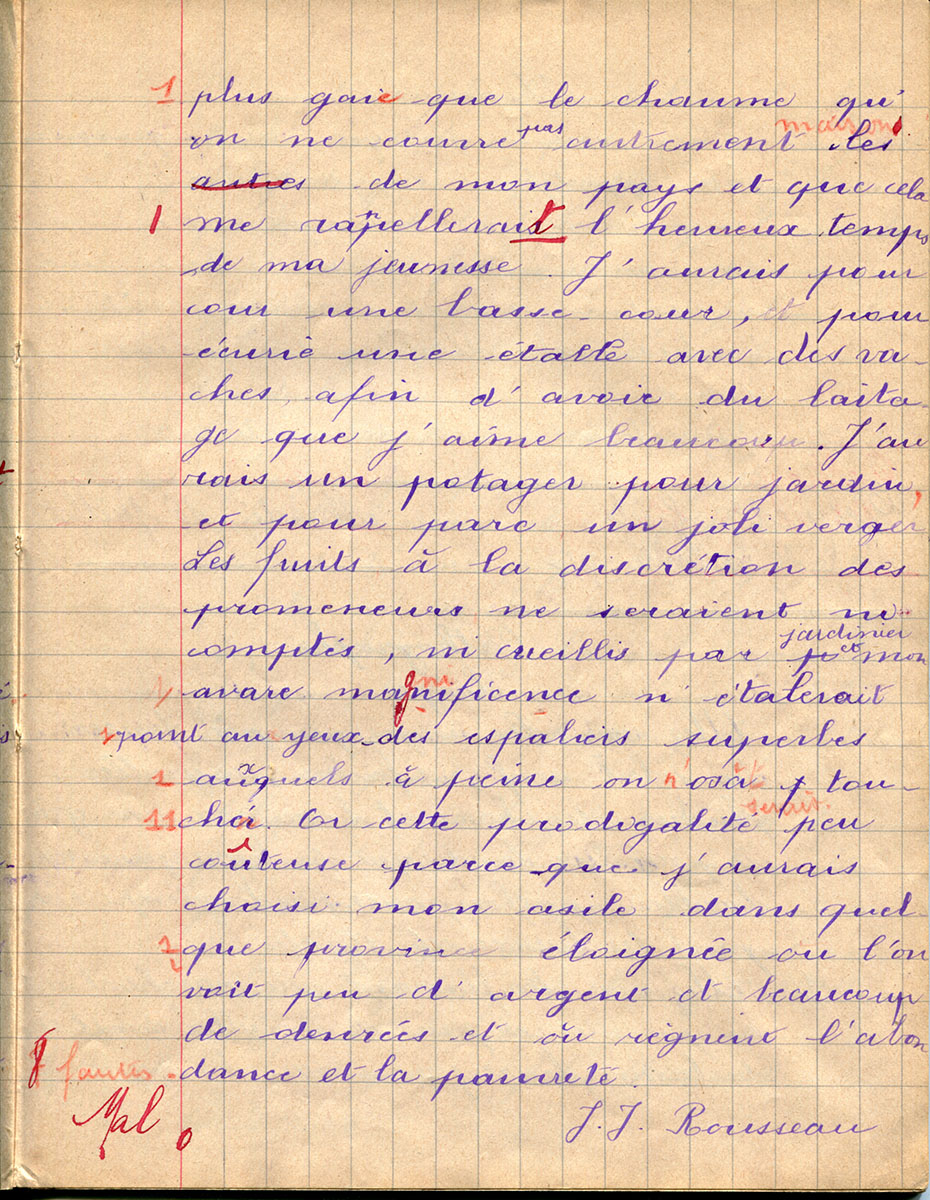 1 plus gaie que le chaume qu'
on ne couvre pas autrement les maisons
autres de mon pays et que cela
1 me rappellerait l'heureux temps
de ma jeunesse. J'aurais pour
cour une basse-cour, et pour
écurie une étable avec des va-
ches, afin d'avoir du laita-
ge que j'aime beaucoup. J'au
rais un potager pour jardin,
et pour parc un joli verger
Les fruits à la discrétion des
promeneurs ne seraient ni
comptés, ni cueillis par jardinier et mon
avare magnificence n'étalerait
point au yeux des espaliers superbes
1 auxquels à peine on n'osa tou-
11 cher. Or cette prodigalité serait peu
coûteuse parce que j'aurais
choisi mon asile dans quel-
1 que province éloignée où l'on
voit peu d'argent et beaucoup
de denrées et où règnent l'abon
dance et la pauvreté.
8 fautes
Mal
0
J. J. Rousseau